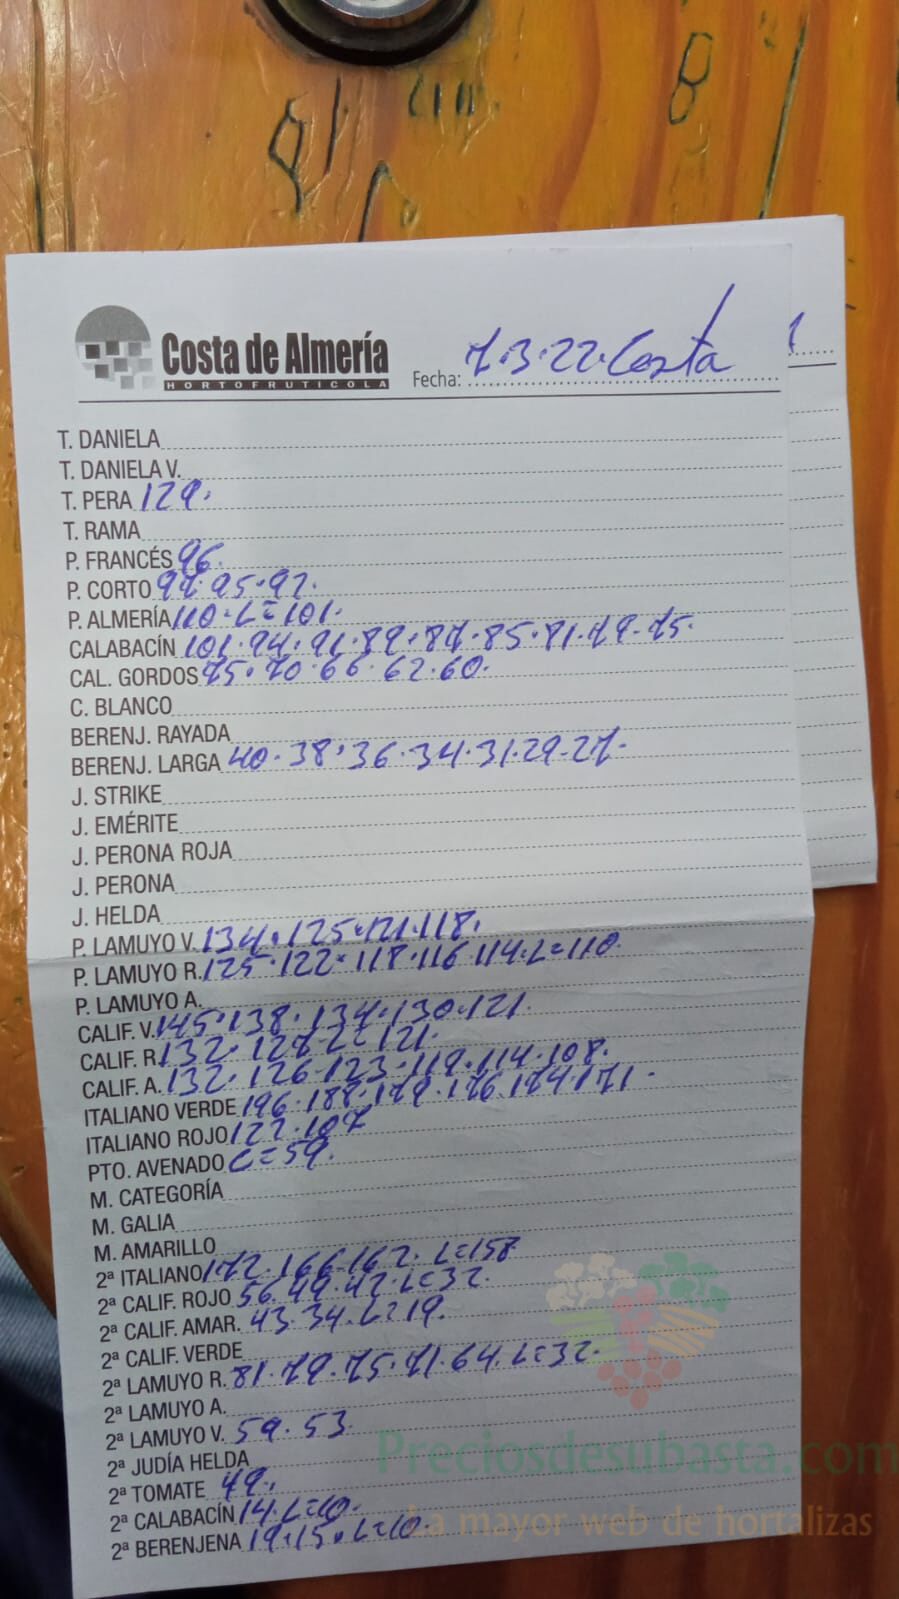 Costa de Almería
HORTOFRUTICOLA
Fecha: 7.3.22. Costa
T. DANIELA
T. DANIELA V.
T. PERA 129.
T. RAMA
P. FRANCÉS 96.
P. CORTO 97. 95. 92.
P. ALMERÍA 110. L=101.
CALABACÍN 101. 94. 91. 89. 87. 85. 81. 79. 75.
CAL. GORDOS 75. 70. 66. 62. 60.
C. BLANCO
BERENJ. RAYADA
BERENJ. LARGA 40. 38. 36. 34. 31. 29. 27.
J. STRIKE
J. EMÉRITE
J. PERONA ROJA
J. PERONA
J. HELDA
P. LAMUYO V. 134. 125. 121. 118.
P. LAMUYO R. 125. 122. 118. 116. 114. L=110.
P. LAMUYO A.
CALIF. V. 145. 138. 134. 130. 121.
CALIF. R. 132. 128. L=121.
CALIF. A. 132. 126. 123. 119. 114. 108.
ITALIANO VERDE 196. 188. 179. 176. 174. 171.
ITALIANO ROJO 122. 107
PTO. AVENADO L=59.
M. CATEGORÍA
M. GALIA
M. AMARILLO
2ª ITALIANO 172. 166. 162. L=158
2ª CALIF. ROJO 56. 49. 42. L=32.
2ª CALIF. AMAR. 43. 34. L=19.
2ª CALIF. VERDE
2ª LAMUYO R. 81. 79. 75. 71. 64. L=32.
2ª LAMUYO A.
2ª LAMUYO V. 59. 53.
2ª JUDÍA HELDA
2ª TOMATE 49.
2ª CALABACÍN 14. L=10.
2ª BERENJENA 19. 15. L=10.
Preciosdesubasta.com
La mayor web de hortalizas